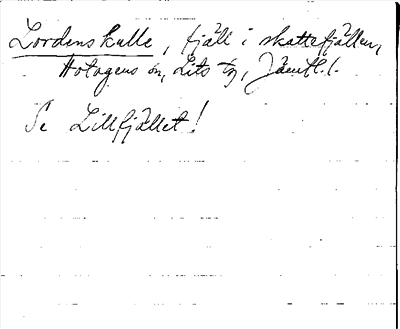 Lordens kulle, fjäll i skattefjällen,
Hotagens sn, Lits tg, Jämtl. l.
Se Lillfjället!